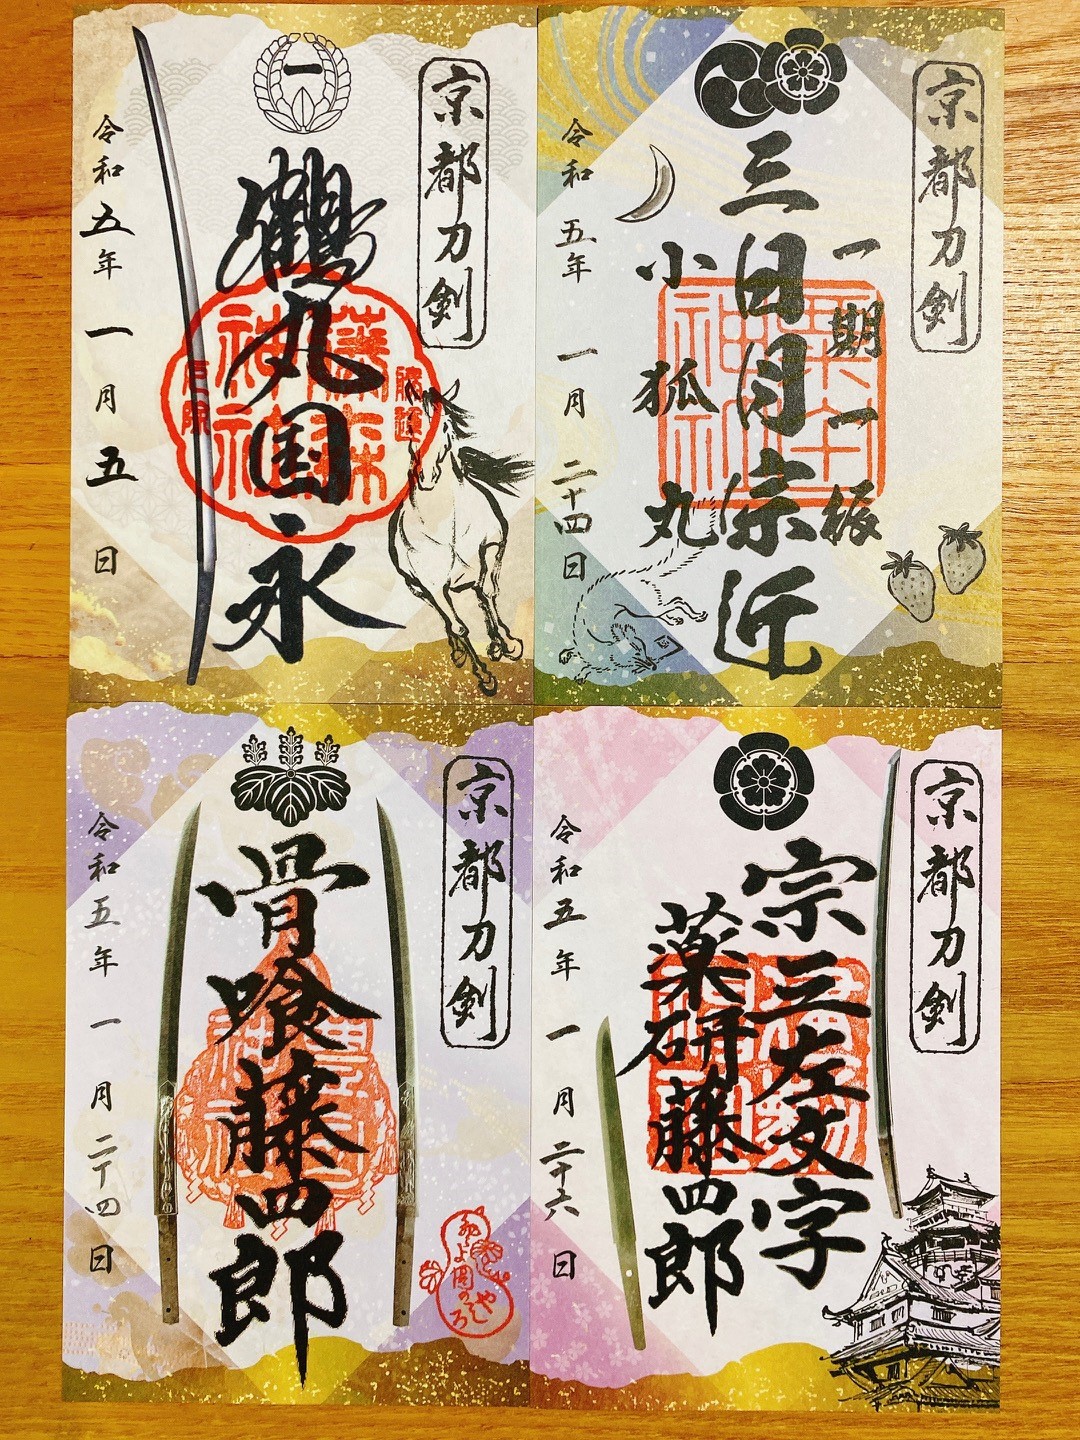 京都刀剣
一
鶴丸国永
藤森
神社
令和五年一月五日
京都刀剣
一期一振
三日月宗近
小狐丸
粟田
神社
令和五年一月二十四日
京都刀剣
骨喰藤四郎
豊国
神社
令和五年一月二十四日
京都刀剣
宗三左文字
薬研藤四郎
建勲
神社
令和五年一月二十六日